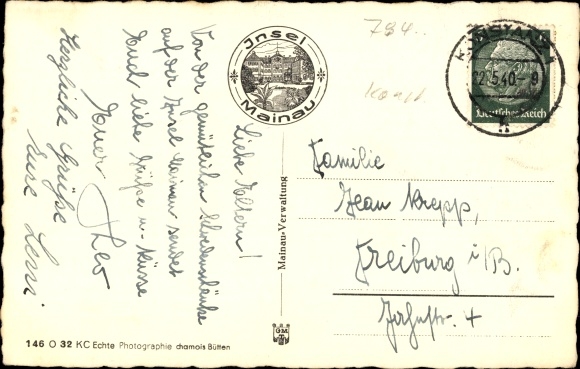 Liebe Eltern!
Von der gemütlichen Schwedenschänke
auf der Insel Mainau sendet
Euch liebe Grüße u. Küsse
Euer Theo
Herzliche Grüße
Eure
Insel
Mainau
794
KONSTANZ 1
22.5.40 - 8
Deutsches Reich
Familie
Jean Krepp,
Freiburg i/B.
4
Mainau-Verwaltung
GM
146 O 32 KC Echte Photographie chamois Bütten